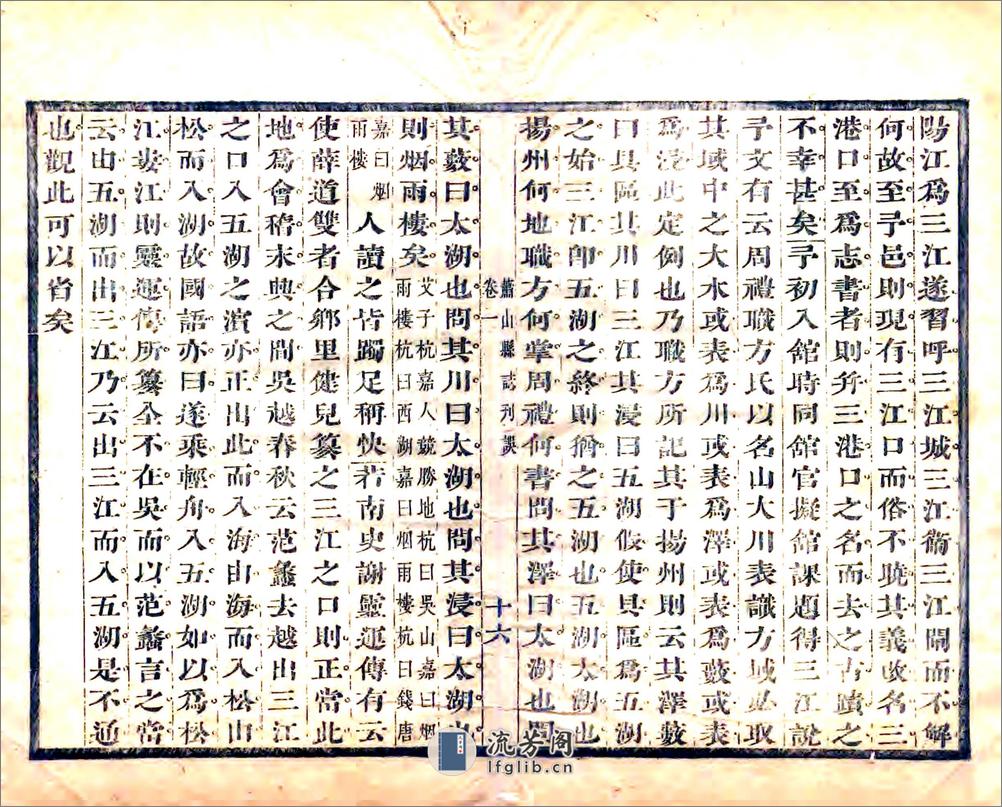 陽江爲三江遂習呼三江城三江衞三江閘而不解
何故至予邑則現有三江口而俗不曉其義改名三
港口至爲志書者則幷三港口之名而去之古蹟之
不幸甚矣予初入館時同館官擬館課題得三江說
予文有云周禮職方氏以名山大川表識方域必取
其域中之大水或表爲川或表爲澤或表爲藪或表
爲浸此定例也乃職方所記其于揚州則云其澤藪
曰具區其川曰三江其浸曰五湖假使具區爲五湖
之始三江卽五湖之終則猶之五湖也五湖太湖也
揚州何地職方何掌周禮何書問其澤曰太湖也問
蕭山縣誌刊誤
卷一
十六
其藪曰太湖也問其川曰太湖也問其浸曰太湖也
則烟雨樓矣艾子杭嘉人競勝地杭曰吳山嘉曰烟
雨樓杭曰西湖嘉曰烟雨樓杭曰錢唐
嘉曰烟
雨樓
人讀之皆躅足稱快若南史謝靈運傳有云
使薛道雙者合鄉里健兒篡之三江之口則正當此
地爲會稽永興之間吳越春秋云范蠡去越出三江
之口入五湖之濱亦正出此而入海由海而入松由
松而入湖故國語亦曰遂乘輕舟入五湖如以爲松
江婁江則靈運傳所篡全不在吳而以范蠡言之當
云由五湖而出三江乃云出三江而入五湖是不通
也觀此可以省矣
流芳閣
lfglib.cn